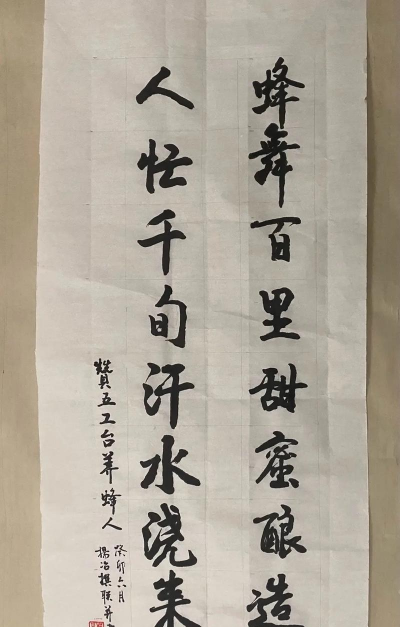 蜂舞百里甜蜜酿造
人忙千旬汗水浇来
赞五工台养蜂人
癸卯六月
杨治撰联并